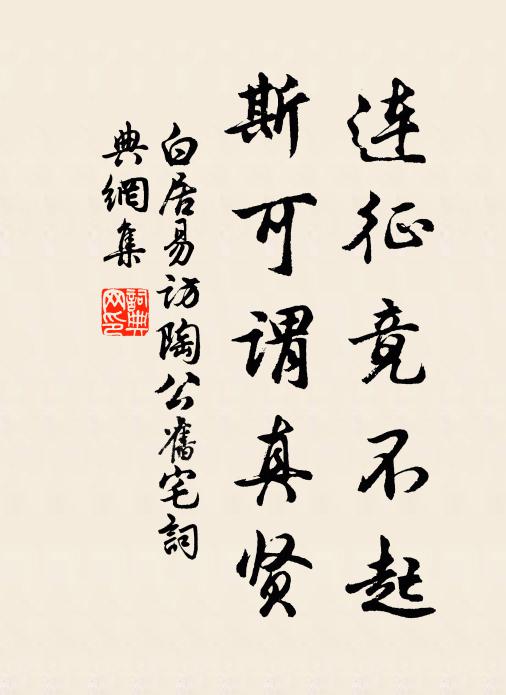 连征竟不起
斯可谓真贤
白居易访陶公舊宅詞
典網集
詞典
网印